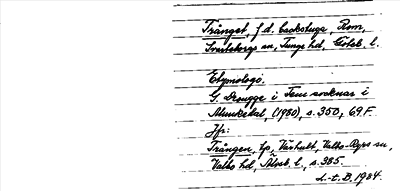 Trånget, f.d. backstuga, Rom,
Svarteborgs sn, Tunge hd, Götab. l.
Etymologi.
G. Drugge i Fem socknar i
Munkedal, (1980), s. 350, 69 F.
Jfr:
Trången, tp, Värhult, Valbo-Ryrs sn,
Valbo hd, Älvsb. l., s. 385.
L-t. B. 1984.